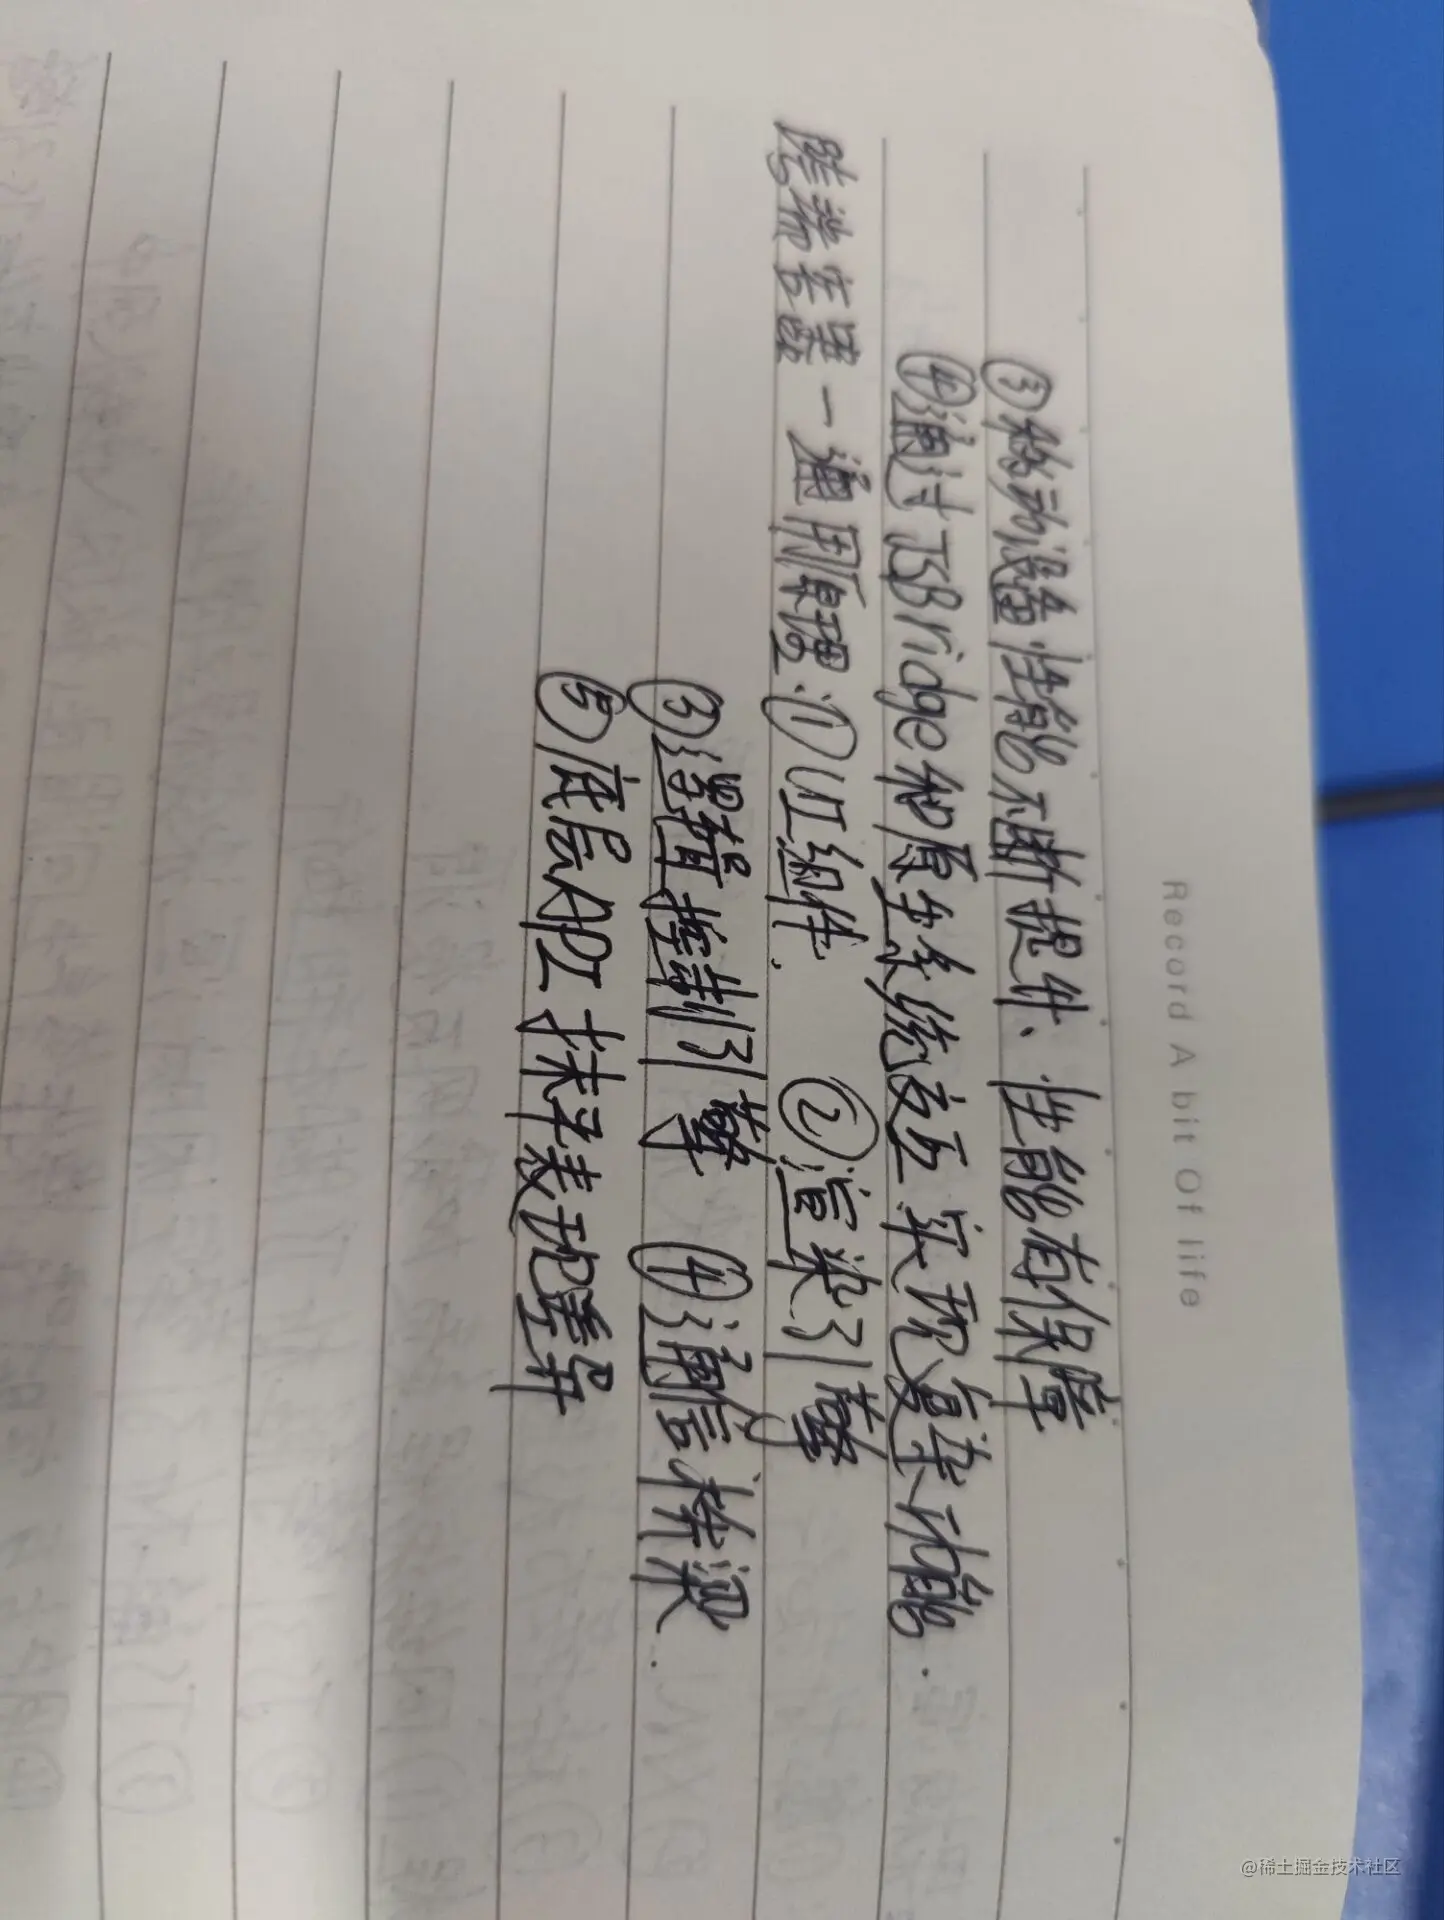 Record A bit Of life
③移动设备性能不断提升、性能有保障
④通过JSBridge和原生系统交互实现复杂功能.
跨端容器一通用原理:①UI组件. ②渲染引擎
③逻辑控制引擎 ④通信桥梁.
⑤底层API抹平表现差异
@稀土掘金技术社区